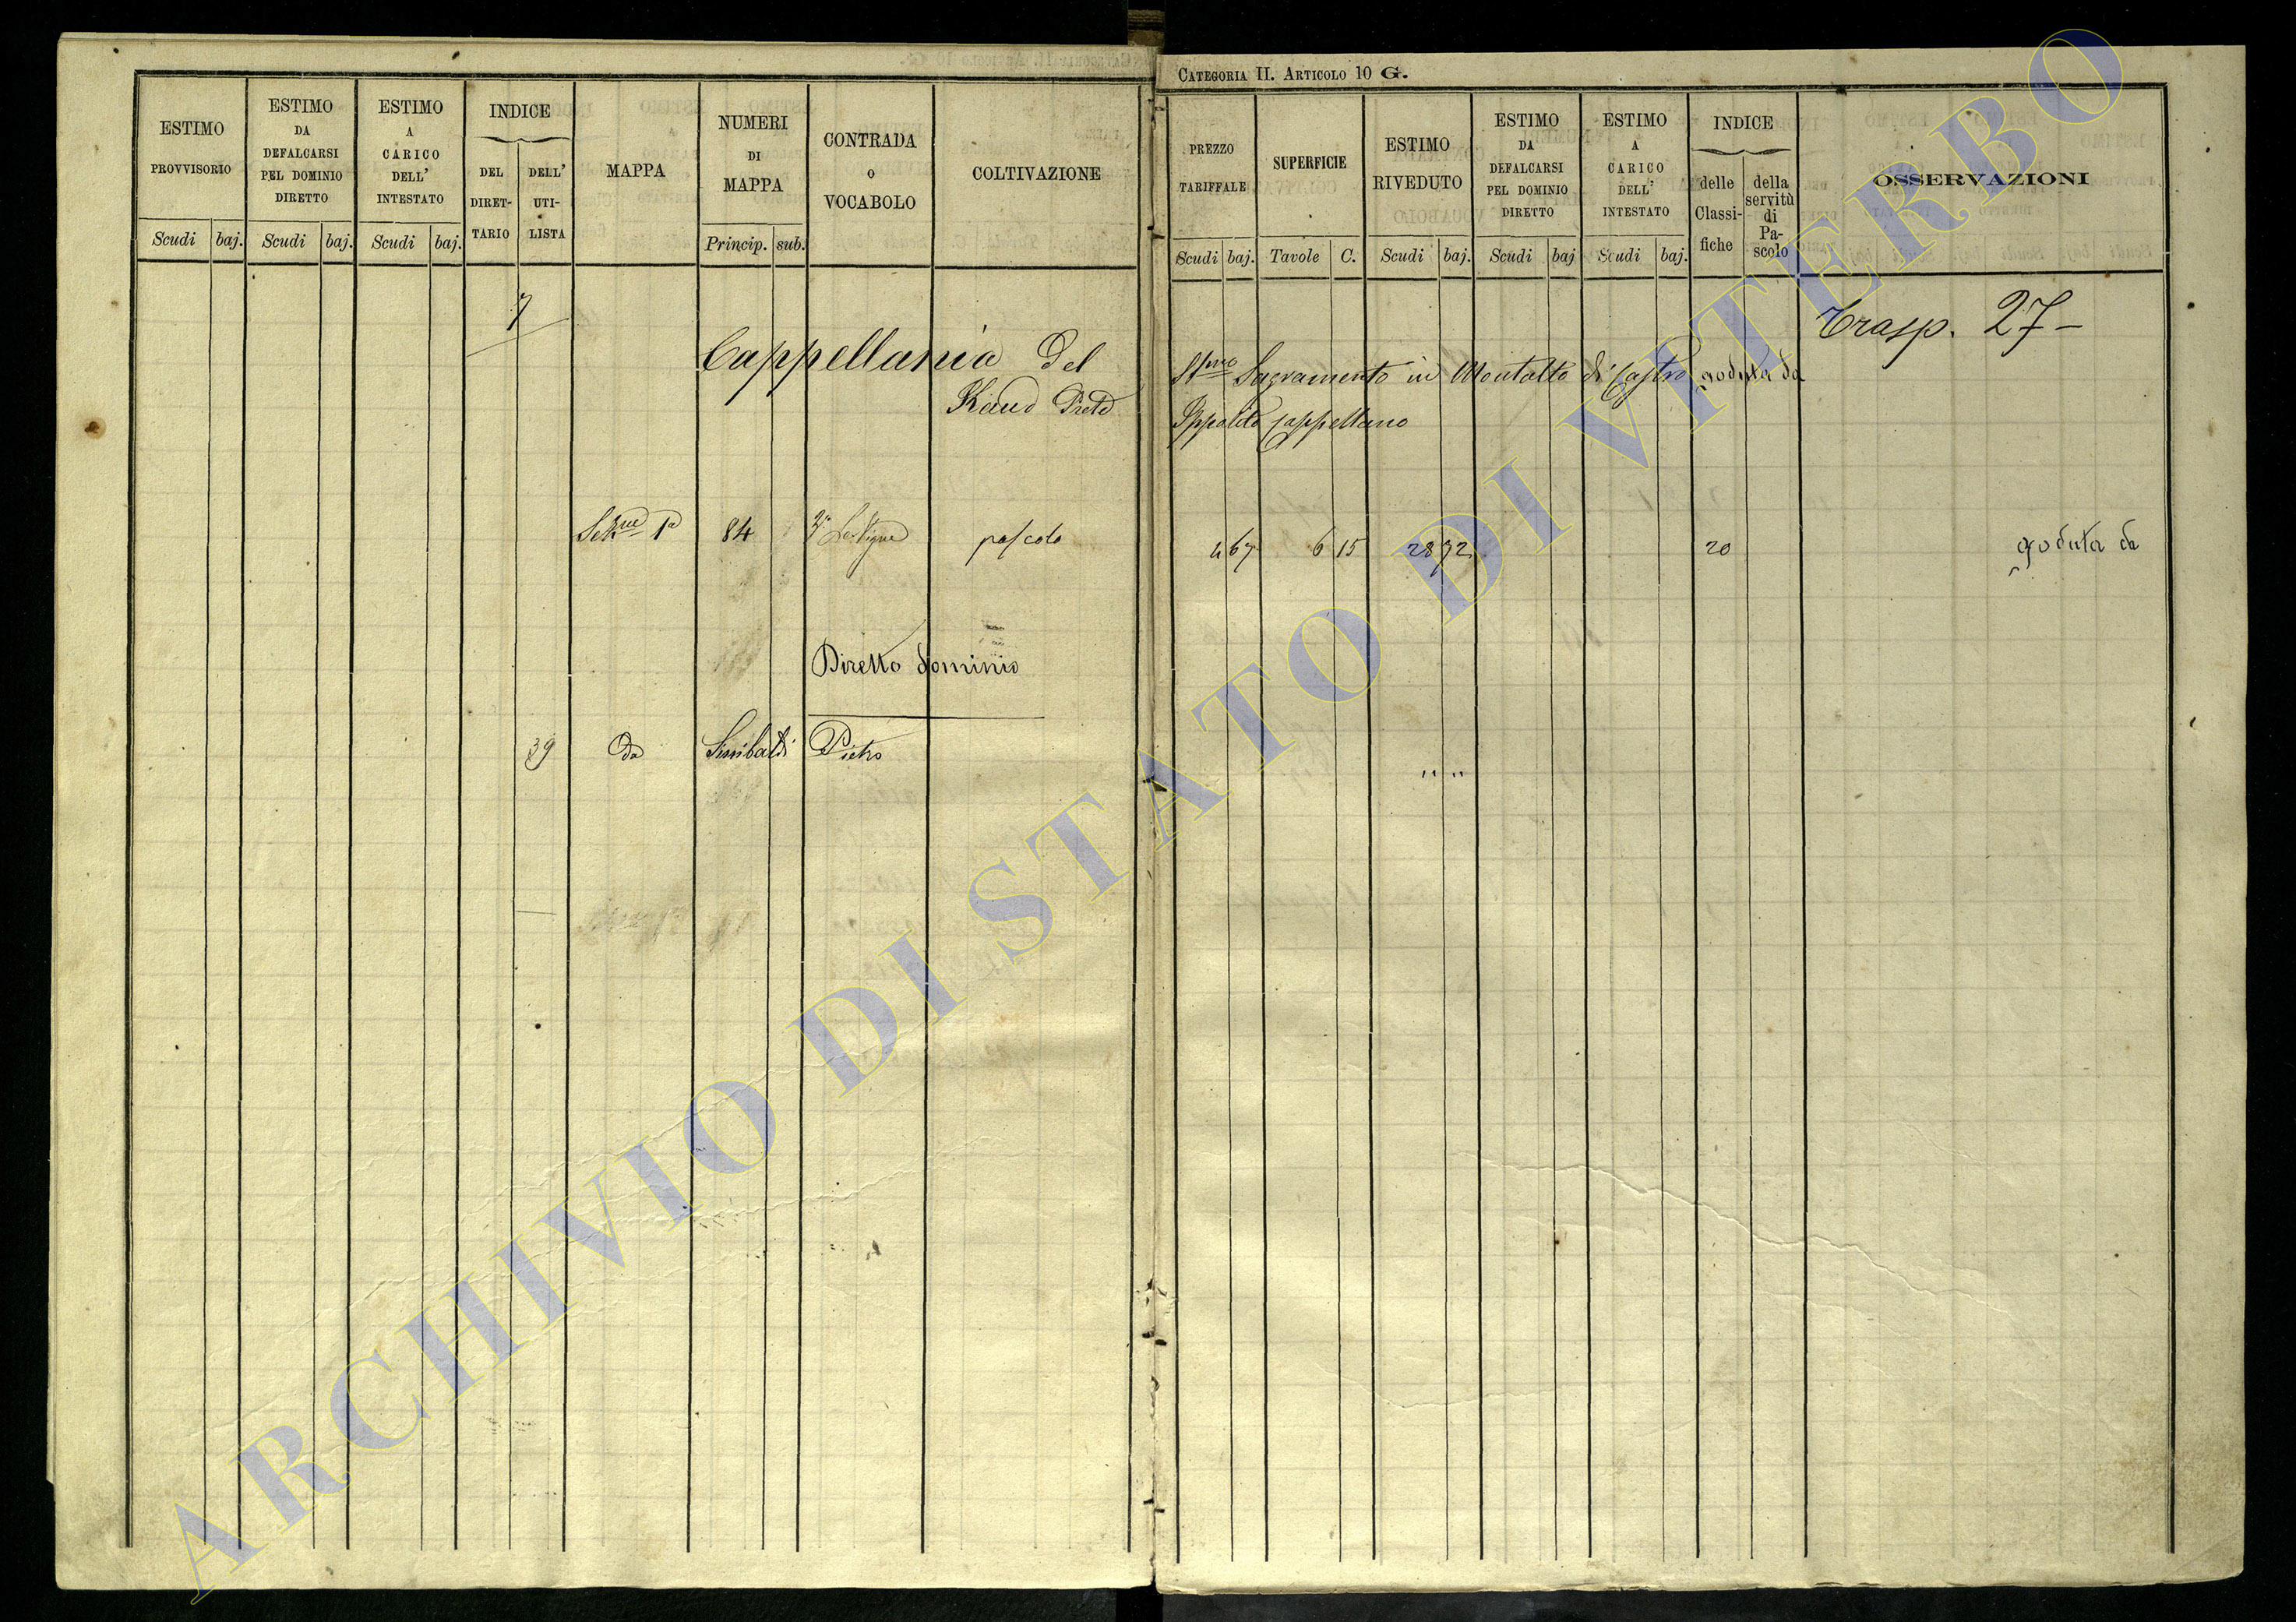 CATEGORIA II. ARTICOLO 10 G.
ESTIMO PROVVISORIO
Scudi baj.
ESTIMO DA DEFALCARSI PEL DOMINIO DIRETTO
Scudi baj.
ESTIMO A CARICO DELL' INTESTATO
Scudi baj.
INDICE
DEL DIRET-TARIO
DELL' UTI-LISTA
MAPPA
NUMERI DI MAPPA
Princip. sub.
CONTRADA O VOCABOLO
COLTIVAZIONE
PREZZO TARIFFALE
Scudi baj.
SUPERFICIE
Tavole C.
ESTIMO RIVEDUTO
Scudi baj.
ESTIMO DA DEFALCARSI PEL DOMINIO DIRETTO
Scudi baj
ESTIMO A CARICO DELL' INTESTATO
Scudi baj.
INDICE
delle Classi-fiche
della servitù di Pa-scolo
OSSERVAZIONI
7
Trasp. 27 –
Cappellania del SSmo Sagramento in Montalto di Castro goduta da
Ippolito Cappellano
Sezne 1a 84 Le Vigne pascolo 4 67 6 15 28 72 20 goduta da
Diretto dominio
39 da Sinibaldi Pietro " "
ARCHIVIO DI STATO DI VITERBO